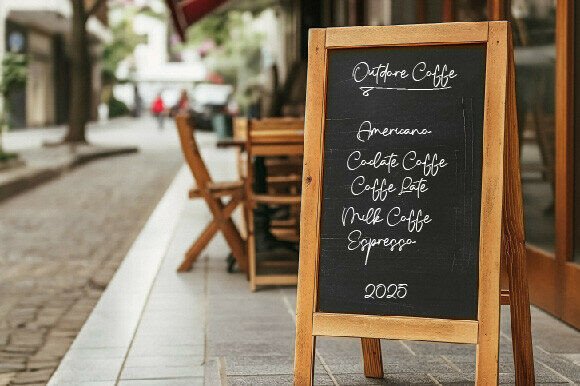 Outdore Coffe
Americano
Coclate Coffe
Coffe Late
Milk Coffe
Espresso
2025